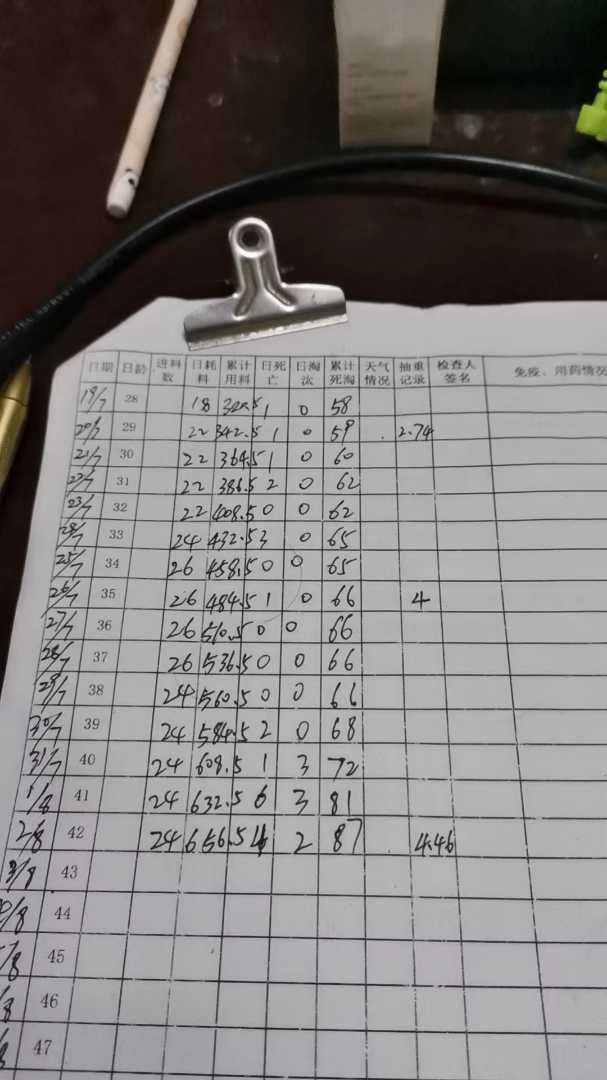 日期 日龄 进料数 日耗料 累计用料 日死亡 日淘汰 累计死淘 天气情况 抽重记录 检查人签名 免疫、用药情况
19/7 28 18 320.5 1 0 58
20/7 29 22 342.5 1 0 59 2.74
21/7 30 22 364.5 1 0 60
22/7 31 22 386.5 2 0 62
23/7 32 22 408.5 0 0 62
24/7 33 24 432.5 3 0 65
25/7 34 26 458.5 0 0 65
26/7 35 26 484.5 1 0 66 4
27/7 36 26 510.5 0 0 66
28/7 37 26 536.5 0 0 66
29/7 38 24 560.5 0 0 66
30/7 39 24 584.5 2 0 68
31/7 40 24 608.5 1 3 72
1/8 41 24 632.5 6 3 81
2/8 42 24 656.5 4 2 87 4.46
3/8 43
/8 44
/8 45
/8 46
47